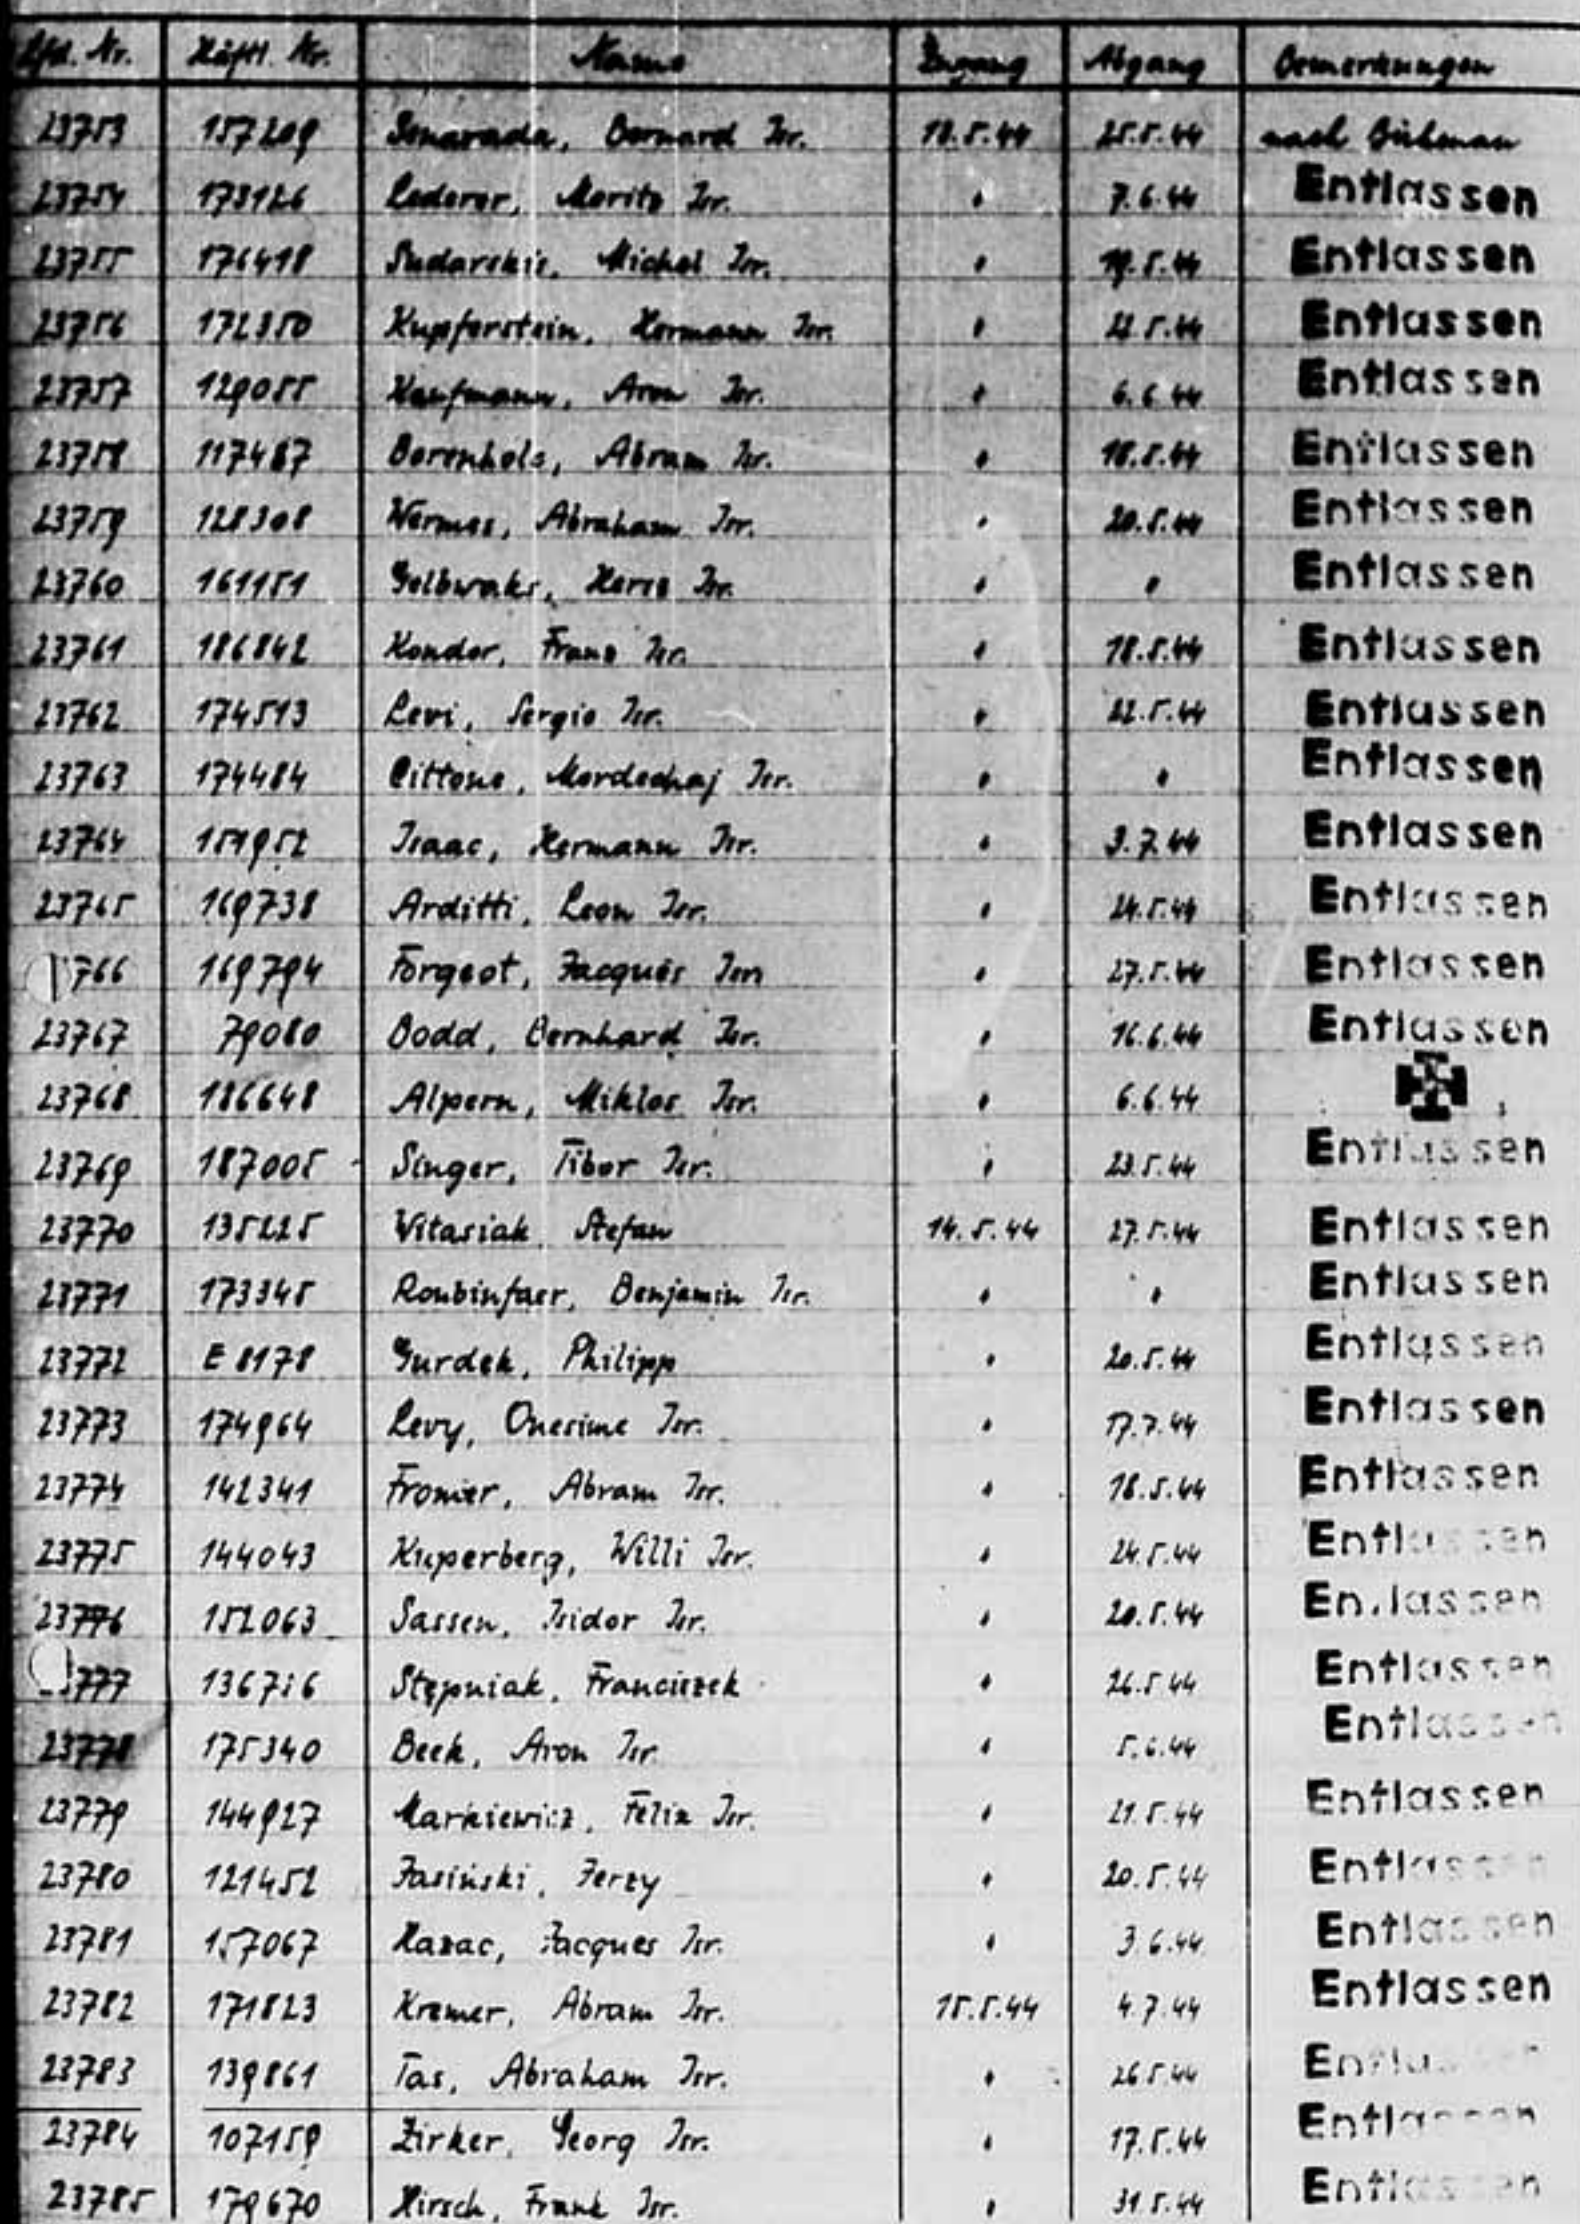 Lfd. Nr. Häftl. Nr. Name Zugang Abgang Bemerkungen
23753 157209 Bernard Isr. 13.5.44 25.5.44 nach Birkenau
23754 173126 Lederer, Moritz Isr. " 7.6.44 Entlassen
23755 176418 Sudarskis, Michel Isr. " 19.5.44 Entlassen
23756 172350 Kupferstein, Hermann Isr. " 22.5.44 Entlassen
23757 129055 Kaufmann, Aron Isr. " 6.6.44 Entlassen
23758 117467 Borenholz, Abram Isr. " 18.5.44 Entlassen
23759 128308 Wermes, Abraham Isr. " 20.5.44 Entlassen
23760 161151 Gelbwaks, Hersz Isr. " " Entlassen
23761 186842 Kondor, Franz Isr. " 18.5.44 Entlassen
23762 174513 Levi, Sergio Isr. " 22.5.44 Entlassen
23763 174484 Cittone, Mordechaj Isr. " " Entlassen
23764 151952 Isaac, Hermann Isr. " 3.7.44 Entlassen
23765 169738 Arditti, Leon Isr. " 24.5.44 Entlassen
766 169794 Forgeot, Jacques Isr. " 27.5.44 Entlassen
23767 79080 Dodd, Bernhard Isr. " 16.6.44 Entlassen
23768 186648 Alpern, Miklos Isr. " 6.6.44
23769 187005 Singer, Tibor Isr. " 23.5.44 Entlassen
23770 135225 Witasiak, Stefan 14.5.44 27.5.44 Entlassen
23771 173345 Roubinfaer, Benjamin Isr. " " Entlassen
23772 E 8178 Gurdek, Philipp " 20.5.44 Entlassen
23773 174964 Levy, Onesime Isr. " 17.7.44 Entlassen
23774 142341 Fromer, Abram Isr. " 18.5.44 Entlassen
23775 144043 Kuperberg, Willi Isr. " 24.5.44 Entlassen
23776 152063 Sassen, Isidor Isr. " 20.5.44 Entlassen
777 Stępniak, Franciszek " 26.5.44 Entlassen
23778 175340 Beek, Aron Isr. " 5.6.44 Entlassen
23779 144927 Markiewicz, Felix Isr. " 21.5.44 Entlassen
23780 121452 Jasiński, Jerzy " 20.5.44 Entlassen
23781 157067 Hazac, Jacques Isr. " 3.6.44 Entlassen
23782 171823 Kremer, Abram Isr. 15.5.44 4.7.44 Entlassen
23783 139861 Tas, Abraham Isr. " 26.5.44 Entlassen
23784 107159 Zirker, Georg Isr. " 17.5.44 Entlassen
23785 179670 Hirsch, Frank Isr. " 31.5.44 Entlassen